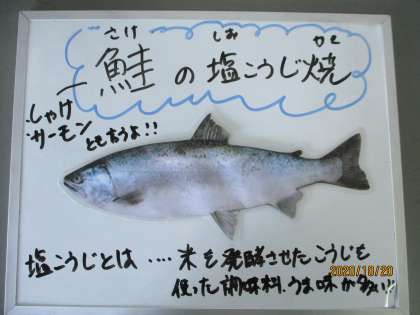 さけ しお やき
鮭の塩こうじ焼
しゃけ
サーモン
とも言うよ!!
塩こうじとは‥‥米を発酵させたこうじを
使った調味料。うま味が多い!!
2020/10/29